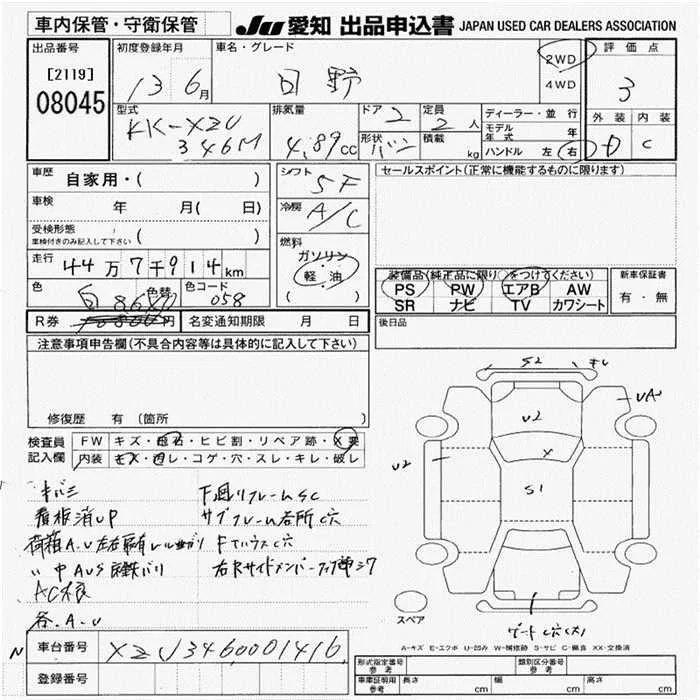 車内保管・守衛保管
JU 愛知 出品申込書 JAPAN USED CAR DEALERS ASSOCIATION
出品番号
[2119]
08045
初度登録年月
13 6月
車名・グレード
日野
2WD
4WD
評価点
3
外装 内装
D C
型式
KK-XZU
346M
排気量
4.89cc
ドア 2
形状 バン
定員 2人
積載 kg
ディーラー・並行
モデル年式 年
ハンドル 左 右
車歴 自家用・( )
車検 年 月( 日)
受検形態
車検付きのみ記入して下さい ( )
走行 44万7千914km
色 白
色替
色コード 058
シフト 5F
冷房 A/C
燃料
ガソリン
軽・油
( )
セールスポイント(正常に機能するものに限ります)
装備品(純正品に限り○をつけてください)
PS PW エアB AW
SR ナビ TV カワシート
新車保証書
有・無
R券 円
名変通知期限 月 日
後日品
注意事項申告欄(不具合内容等は具体的に記入して下さい)
修復歴 有 (箇所 )
検査員記入欄
FW キズ・飛石・ヒビ割・リペア跡・X要
内装 キズ・汚レ・コゲ・穴・スレ・キレ・破レ
キバミ
看板消UP
荷箱A.U左右扉有レール曲ガリ
〃中AUS
AC不良
各.A.U
下回リフレームSC
サブフレーム各所C穴
FTハウスC穴
右Rサイドメンバー
S2
UA
U2
X
U2
S1
スペア
ゲートC穴(大)
A-キズ E-エクボ U-凹み W-補修跡 S-サビ C-腐食 XX-交換済
N 車台番号 XZU3460001416
登録番号
形式指定番号
参考
類別区分番号
参考
車庫証明用
参考
長さ cm
幅 cm
高さ cm